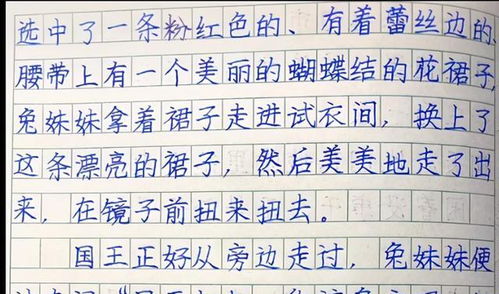 选中了一条粉红色的、有着蕾丝边的、
腰带上有一个美丽的蝴蝶结的花裙子，
兔妹妹拿着裙子走进试衣间，换上了
这条漂亮的裙子，然后美美地走了出
来，在镜子前扭来扭去。
国王正好从旁边走过，兔妹妹便